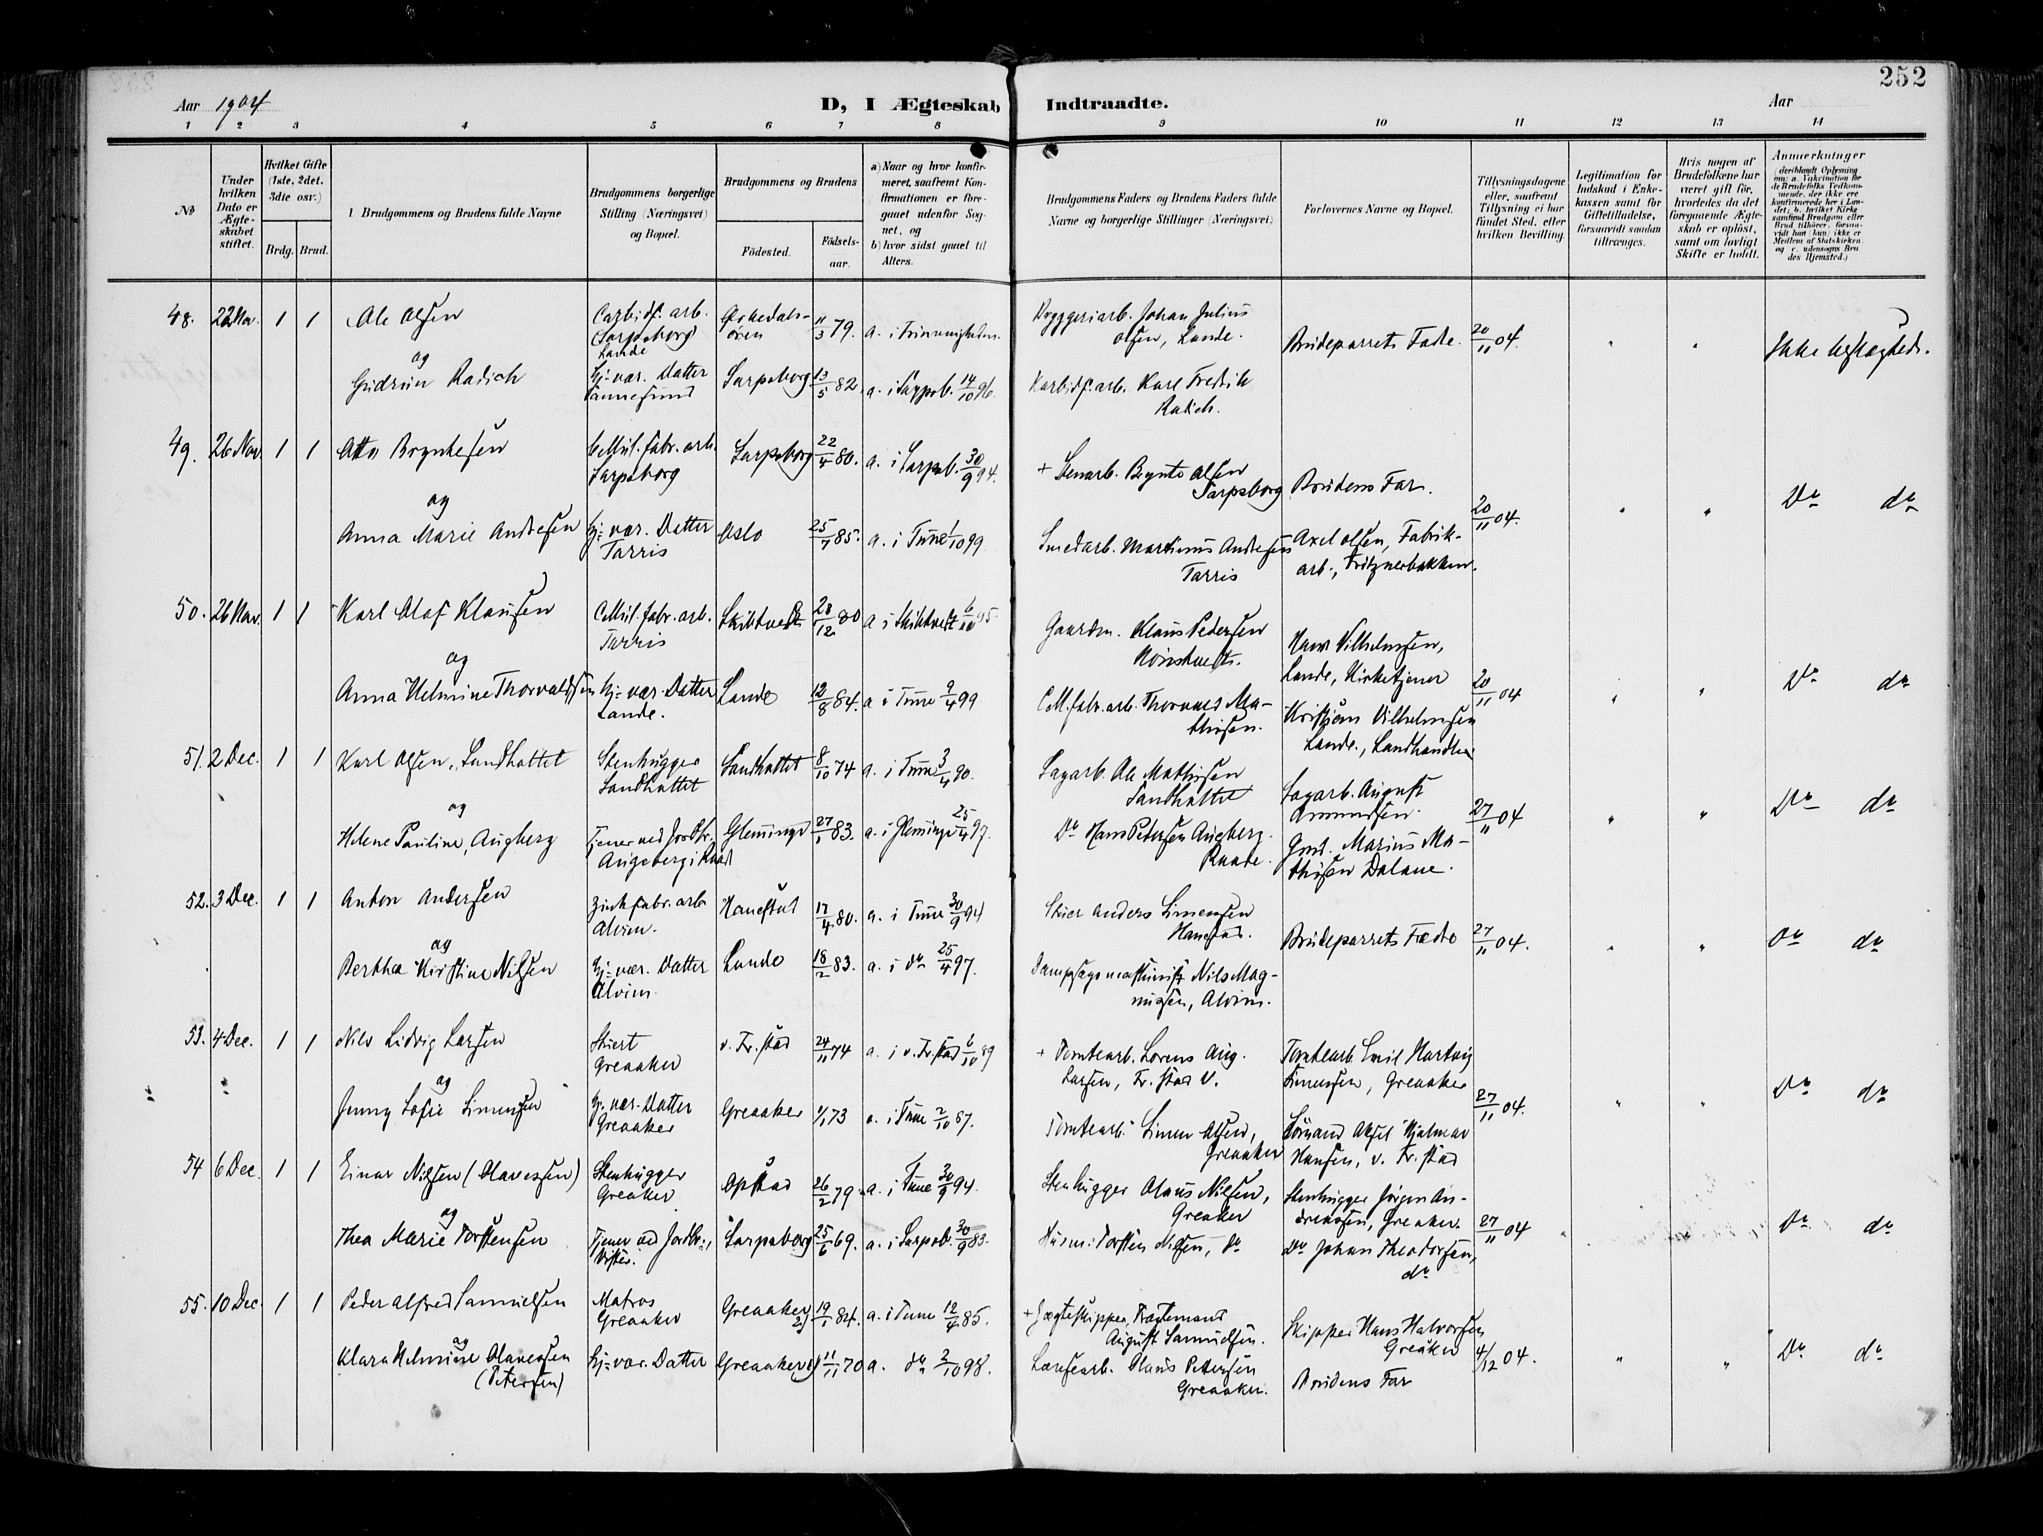 252
Aar 1904
D, I Ægteskab Indtraadte.
Aar
1 2 3 4 5 6 7 8 9 10 11 12 13 14
No
Under hvilken Dato er Ægteskabet stiftet.
Hvilket Gifte (1ste, 2det, 3die osv.)
Brdg. Brud.
Brudgommens og Brudens fulde Navne
Brudgommens borgerlige Stilling (Næringsvei) og Bopæl.
Brudgommens og Brudens
Födested.
Födselsaar.
a) Naar og hvor konfirmeret, saafremt Konfirmationen er foregaaet udenfor Sognet, og
b) hvor sidst gaaet til Alters.
Brudgommens Faders og Brudens Faders fulde Navne og borgerlige Stillinger (Næringsvei)
Forlovernes Navne og Bopæl.
Tillysningsdagene eller, saafremt Tillysning ei har fundet Sted, efter hvilken Bevilling.
Legitimation for Indskud i Enkekassen samt for Giftetilladelse, forsaavidt saadan tiltrænges.
Hvis nogen af Brudefolkene har været gift för, hvorledes da det foregaaende Ægteskab er oplöst, samt om lovligt Skifte er holdt.
Anmærkninger
48. 22 Nov. 1 1 Ole Olsen Carbidf. arb. Sarpsborg Lande 11/3 79. a. i Bryggeriarb. Johan Julius Olsen, Lande. Brudeparrets Fædre. 20/11 04. Ikke beslægtede.
og
Gudrun Radich Hj. vær. Datter Sannesund Sarpsborg 13/5 82. a. i Sarpsb. 14/10 96. Karbidf. arb. Karl Fredrik Radich.
49. 26 Nov. 1 1 Otto Bryntesen Cellul. fabr. arb. Sarpsborg Sarpsborg 22/4 80. a. i Sarpsb. 30/9 94. + Stenarb. Brynte Olsen Sarpsborg Brudens Far. 20/11 04. Do do
og
Anna Marie Andresen Hj. vær. Datter Tarris Oslo 25/7 85. a. i Tune 1/10 99. Smedarb. Martinus Andresen Tarris Axel Olsen, Fabrikarb., Fritznerbakken.
50. 26 Nov. 1 1 Karl Olaf Klausen Cellul. fabr. arb. Tarris Skibtvedt 28/12 80 a i Skibtvedt 6/10 95. Gaardm. Klaus Pedersen Hans Vilhelmsen, Lande, Kirketjener 20/11 04 Do do
og
Anna Helmine Thorvaldsen Hj. vær. Datter Lande. Lande 12/8 84. a i Tune 9/4 99 C.M. fabr. arb. Mathisen. Kristian Vilhelmsen Lande, Landhandler
51. 2 Dec. 1 1 Karl Olsen, Sandhattet Stenhugger Sandhattet Sandhattet 8/10 74 a. i Tune 3/4 90. Sagarb. Ole Mathisen Sandhattet Sagarb. August Amundsen. 27/11 04 Do do
og
Helene Pauline, Augberg Tjener ved Glemminge 27/1 83. a. i Glemminge 25/4 97. Do Hans Petersen Augberg. Raade. Gmd. Marius Mathisen Dalane.
52. 3 Dec. 1 1 Anton Andersen Zinkfabr. arb Alvim. Hanestad 17/4 80. a. i Tune 30/9 94 Skier Anders Simensen Hanestad. Brudeparrets Fædre 27/11 04. Do do
og
Bertha Kirstine Nilsen Hj. vær. Datter Alvim. Lande 18/2 83. a. i do 25/4 97. Dampsagmaskinist Nils Magnusen, Alvim.
53. 4 Dec. 1 1 Nils Ludvig Larsen Greaaker v. Fr.stad 24/11 74 a. i v. Fr.stad 6/10 89 + Tomtearb. Lorens Aug. Larsen, Fr.stad V. Tomtearb. Emil Hartvig Simensen, Greaaker 27/11 04. Do do
og
Jenny Sofie Simensen Hj. vær. Datter Greaaker Greaaker 1/1 73 a. i Tune 2/10 87. Tomtearb. Simen Olsen, Greaaker Sömand Aksel Hjalmar Hansen, v. Fr.stad
54 6 Dec. 1 1 Einar Nilsen (Olavessen) Stenhugger Greaaker Opstad 26/2 79. a. i Tune 30/9 94. Stenhugger Olaus Nilsen, Greaker Stenhugger Jörgen Andreassen, Greaker. 27/11 04 Do do
og
Thea Marie Torstensen Tjener ved Jordbr., Sarpsborg 25/6 69. a. i Sarpsb. 30/9 83. Husm. Torsten Nilsen, do Do Johan Theodorsen, do
55. 10 Dec. 1 1 Peder Alfred Samuelsen Matros Greaaker Greaaker 2) 19/1 84. a. i Tune 12/4 85. + Jægteskipper, August Samuelsen. Skipper Hans Halvorsen Greåker 4/12 04. Do do
og
Klara Helmine Olavessen (Petersen) Hj. vær. Datter Greaaker 1) 11/11 70 a. do 2/10 98. Lænsearb. Olaus Petersen Greaaker. Brudens Far